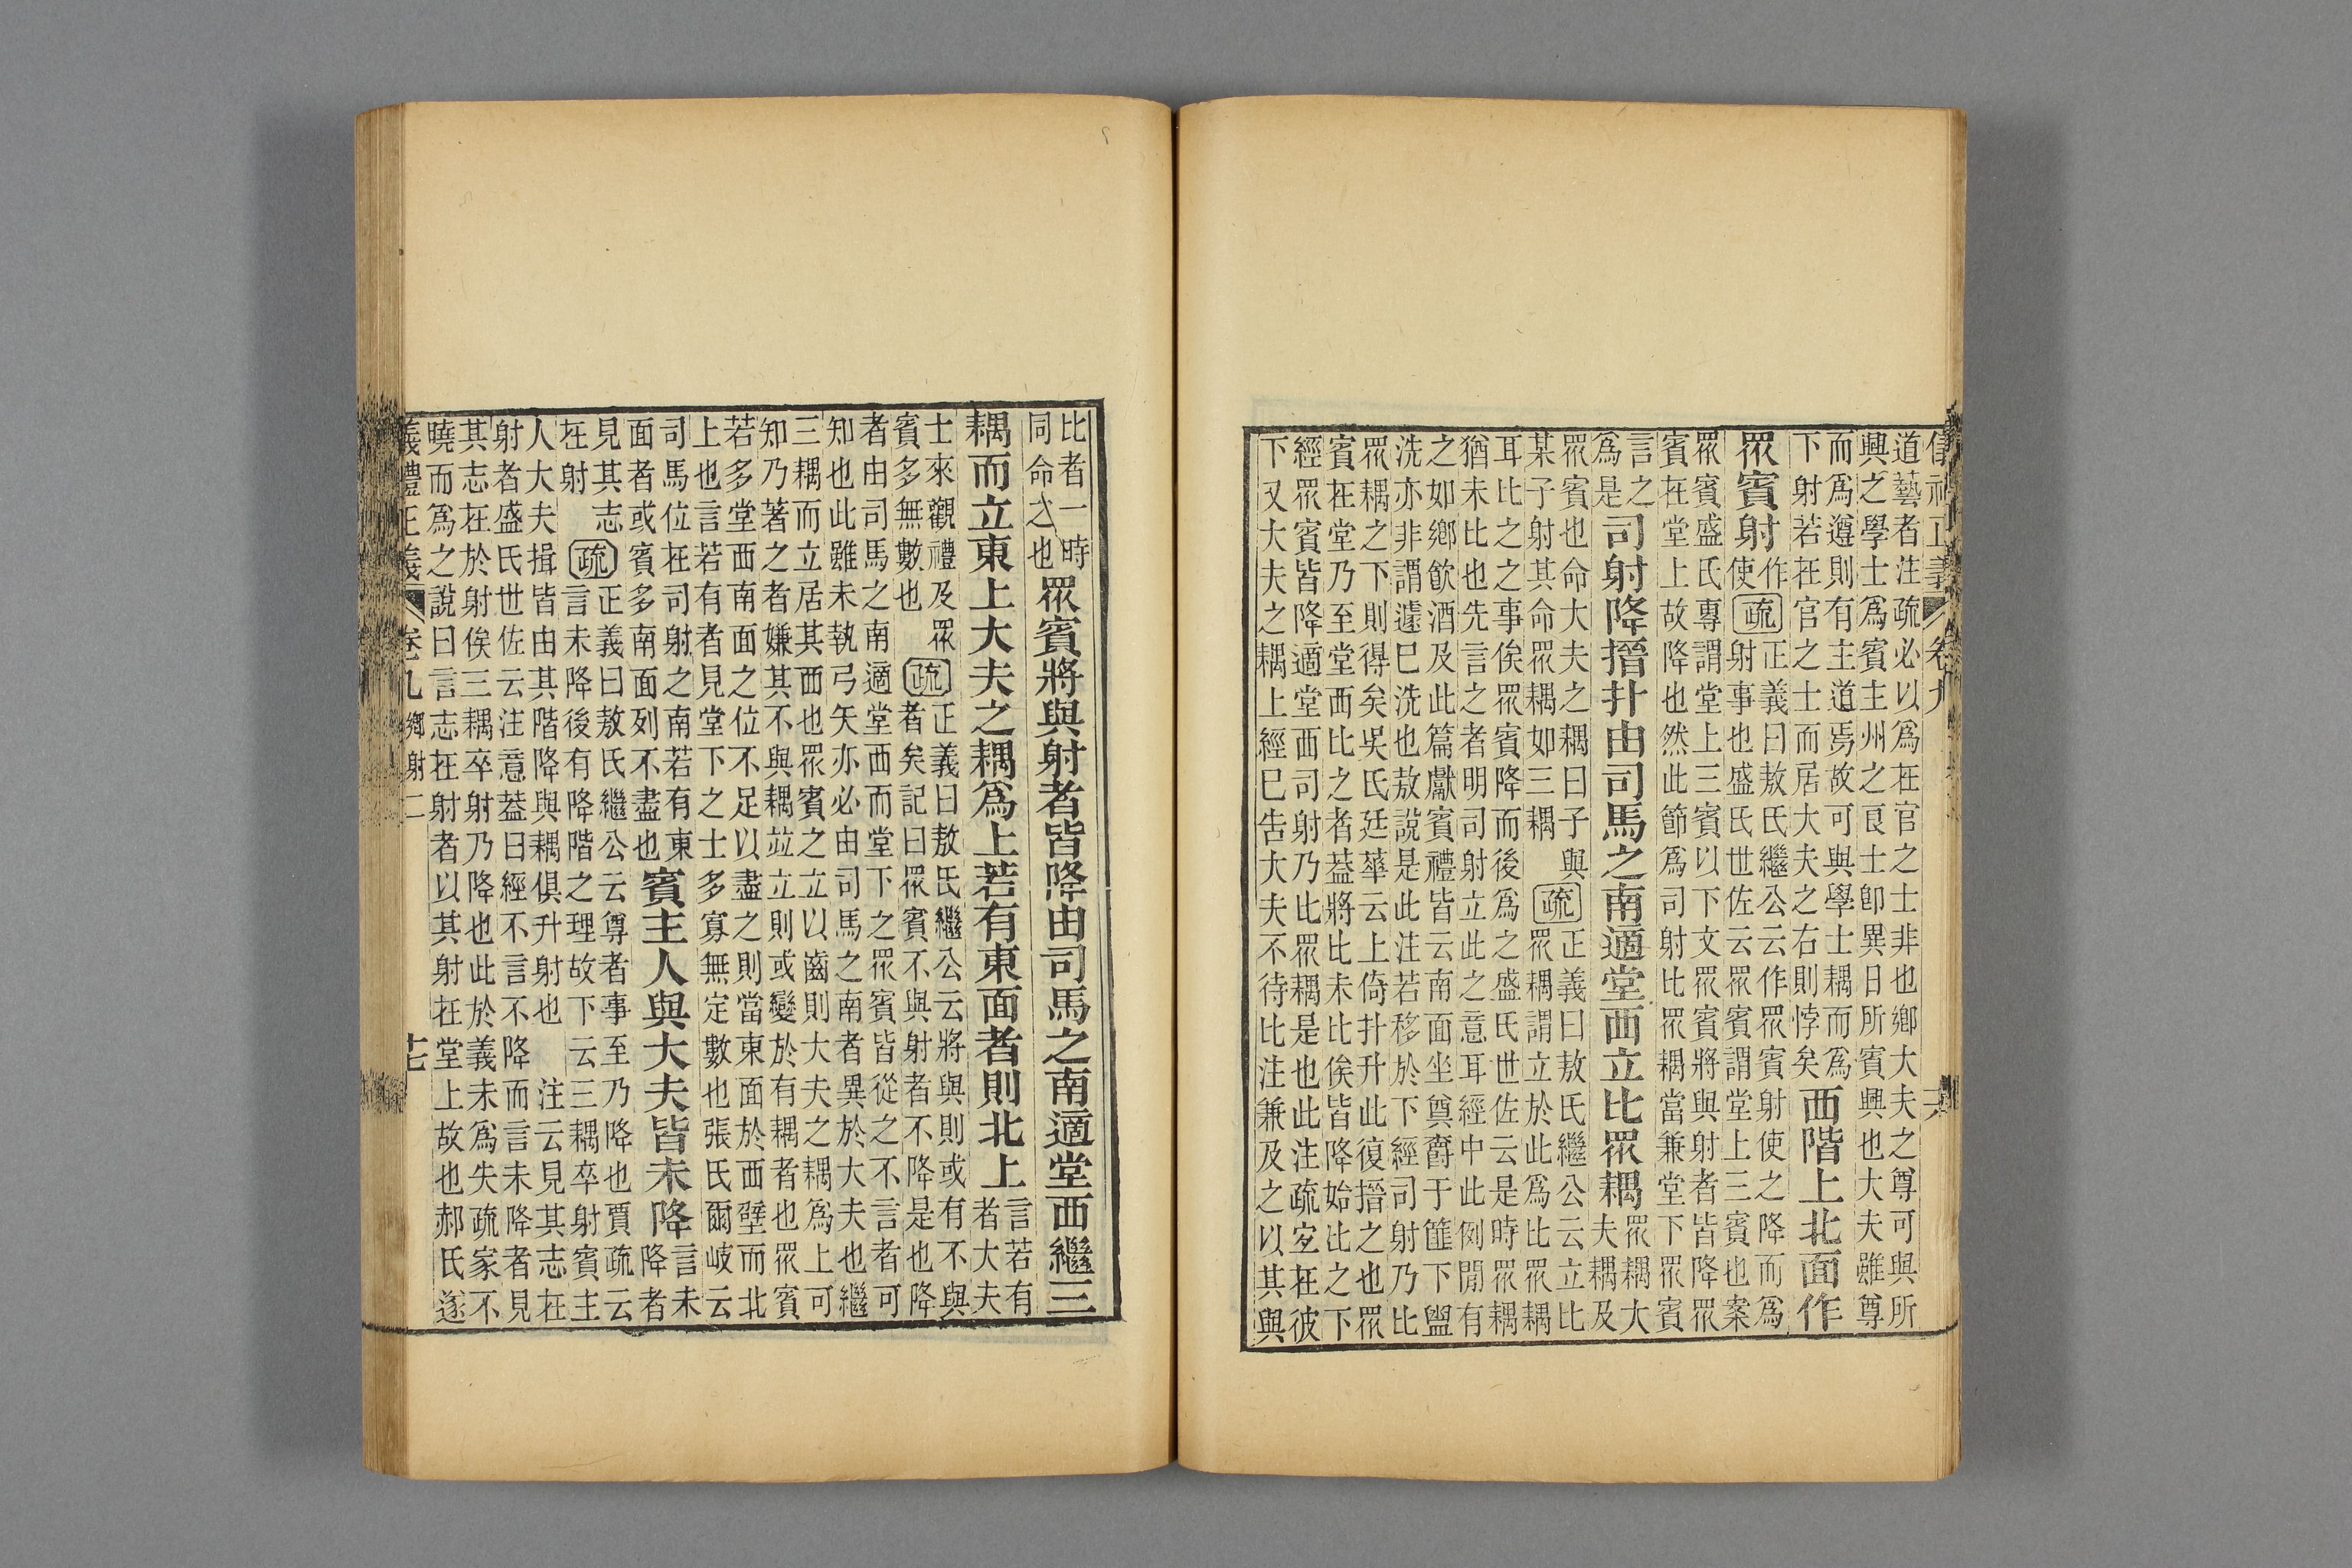 儀禮正義 卷九 十六
道藝者注疏必以爲在官之士非也鄉大夫之尊可與所
興之學士爲賓主州之良士卽異日所賓興也大夫雖尊
而爲遵則有主道焉故可與學士耦而爲
下射若在官之士而居大夫之右則悖矣
西階上北面作
眾賓射
作
使
疏
正義曰敖氏繼公云作眾賓射使之降而爲
射事也盛氏世佐云眾賓謂堂上三賓也案
眾賓盛氏專謂堂上三賓以下文眾賓將與射者皆降眾
賓在堂上故降也然此節爲司射比眾耦當兼堂下眾賓
言之
爲是
司射降搢扑由司馬之南適堂西立比眾耦
眾耦大
夫耦及
眾賓也命大夫之耦曰子與
某子射其命眾耦如三耦
疏
正義曰敖氏繼公云立比
眾耦謂立於此爲比眾耦
耳比之之事俟眾賓降而後爲之盛氏世佐云是時眾耦
猶未比也先言之者明司射立此之意耳經中此例閒有
之如鄉飮酒及此篇獻賓禮皆云南面坐奠爵于篚下盥
洗亦非謂遽已洗也敖說是此注若移於下經司射乃比
眾耦之下則得矣吳氏廷華云上倚扑升此復搢之也眾
賓在堂乃至堂西比之者蓋將比未比俟皆降始比之下
經眾賓皆降適堂西司射乃比眾耦是也此注疏㝎在彼
下又大夫之耦上經已告大夫不待比注兼及之以其與
比者一時
同命之也
眾賓將與射者皆降由司馬之南適堂西繼三
耦而立東上大夫之耦爲上若有東面者則北上
言若有
者大夫
士來觀禮及眾
賓多無數也
疏
正義曰敖氏繼公云將與則或有不與
者矣記曰眾賓不與射者不降是也降
者由司馬之南適堂西而堂下之眾賓皆從之不言者可
知也此雖未執弓矢亦必由司馬之南者異於大夫也繼
三耦而立居其西也眾賓之立以齒則大夫之耦爲上可
知乃著之者嫌其不與耦竝立則或變於有耦者也眾賓
若多堂西南面之位不足以盡之則當東面於西壁而北
上也言若有者見堂下之士多寡無定數也張氏爾岐云
司馬位在司射之南若有東
面者或賓多南面列不盡也
賓主人與大夫皆未降
言未
降者
見其志
在射
疏
正義曰敖氏繼公云尊者事至乃降也賈疏云
言未降後有降階之理故下云三耦卒射賓主
人大夫揖皆由其階降與耦俱升射也 注云見其志在
射者盛氏世佐云注意蓋曰經不言不降而言未降者見
其志在於射俟三耦卒射乃降也此於義未爲失疏家不
曉而爲之說曰言志在射者以其射在堂上故也郝氏遂
義禮正義 卷九 鄉射二 十七